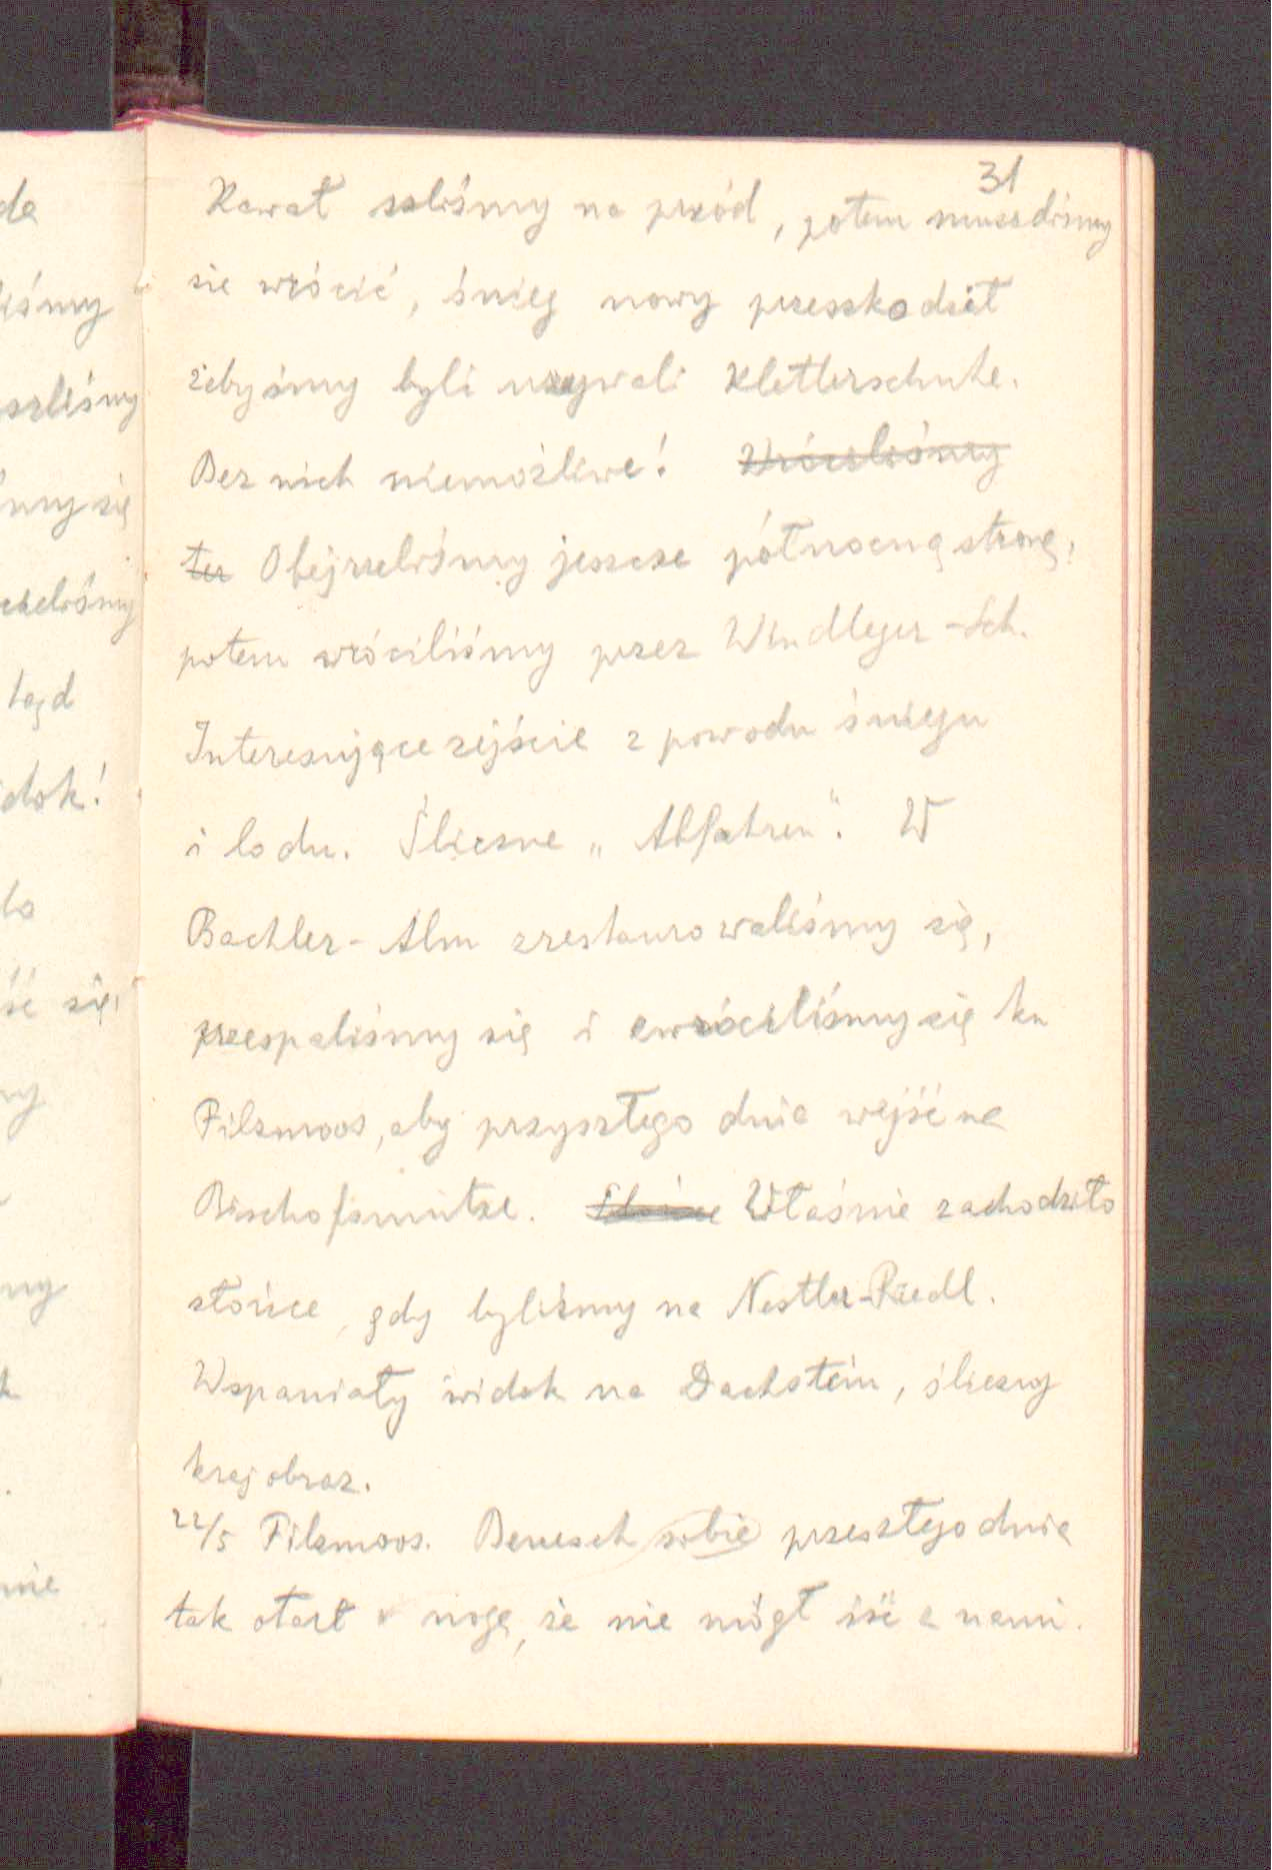 31
da
Kawał szliśmy na przód, potem musieliśmy
liśmy
się wrócić, śnieg nowy przeszkodził
szliśmy
żebyśmy byli używali Kletterschuhe.
Bez nich niemożliwe! Wróciliśmy
śmy się
ter Obejrzeliśmy jeszcze północną stronę,
potem wróciliśmy przez Windleger-Sch.
Interesujące zejście z powodu śniegu
idok!
i lodu. Śliczne „Abfahren". W
Bachler-Alm zrestaurowaliśmy się,
się,
przespaliśmy się i zwróciliśmy się ku
Filzmoos, aby przyszłego dnia wejść na
Bischofsmütze. Właśnie zachodziło
słońce, gdy byliśmy na Nestler-Riedl.
Wspaniały widok na Dachstein, śliczny
krajobraz.
22/5 Filzmoos. Benesch sobie przeszłego dnia
nie
tak otarł nogę, że nie mógł iść z nami.